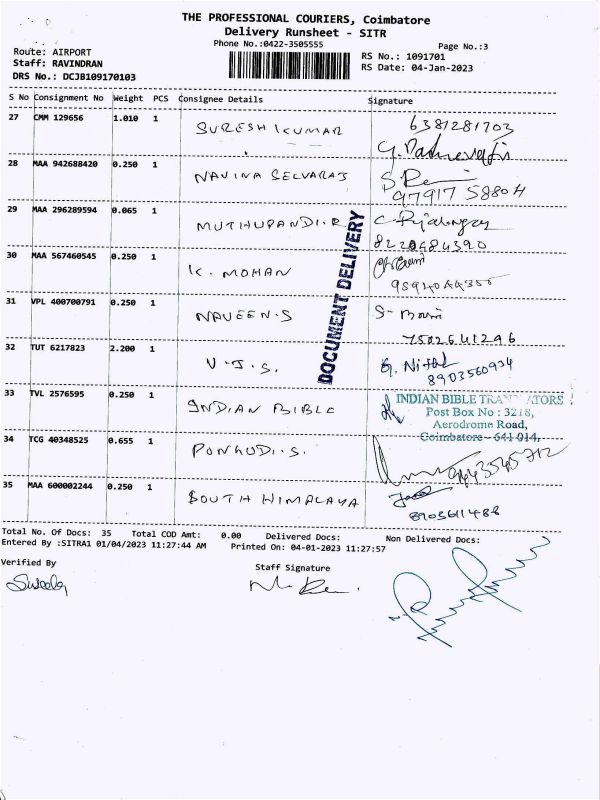 THE PROFESSIONAL COURIERS, Coimbatore
Delivery Runsheet - SITR
Phone No.:0422-3505555
Page No.:3
Route: AIRPORT
Staff: RAVINDRAN
DRS No.: DCJB109170103
RS No.: 1091701
RS Date: 04-Jan-2023
S No Consignment No Weight PCS Consignee Details Signature
27 CMM 129656 1.010 1 SURESH KUMAR 6381281703
28 MAA 942688420 0.250 1 NAVINA SELVARAJ
97917 58804
29 MAA 296289594 0.065 1 MUTHUPANDI.R
30 MAA 567460545 0.250 1 K. MOHAN
31 VPL 400700791 0.250 1 NAVEEN.S
7502641296
32 TUT 6217823 2.200 1 V.J.S.
8903560934
33 TVL 2576595 0.250 1 INDIAN BIBLE
34 TCG 40348525 0.655 1 PONGUDI.S.
35 MAA 600002244 0.250 1 SOUTH HIMALAYA
DOCUMENT DELIVERY
INDIAN BIBLE
Post Box No : 3218,
Aerodrome Road,
Coimbatore - 641 014.
Total No. Of Docs: 35 Total COD Amt: 0.00 Delivered Docs: Non Delivered Docs:
Entered By :SITRA1 01/04/2023 11:27:44 AM Printed On: 04-01-2023 11:27:57
Verified By
Staff Signature